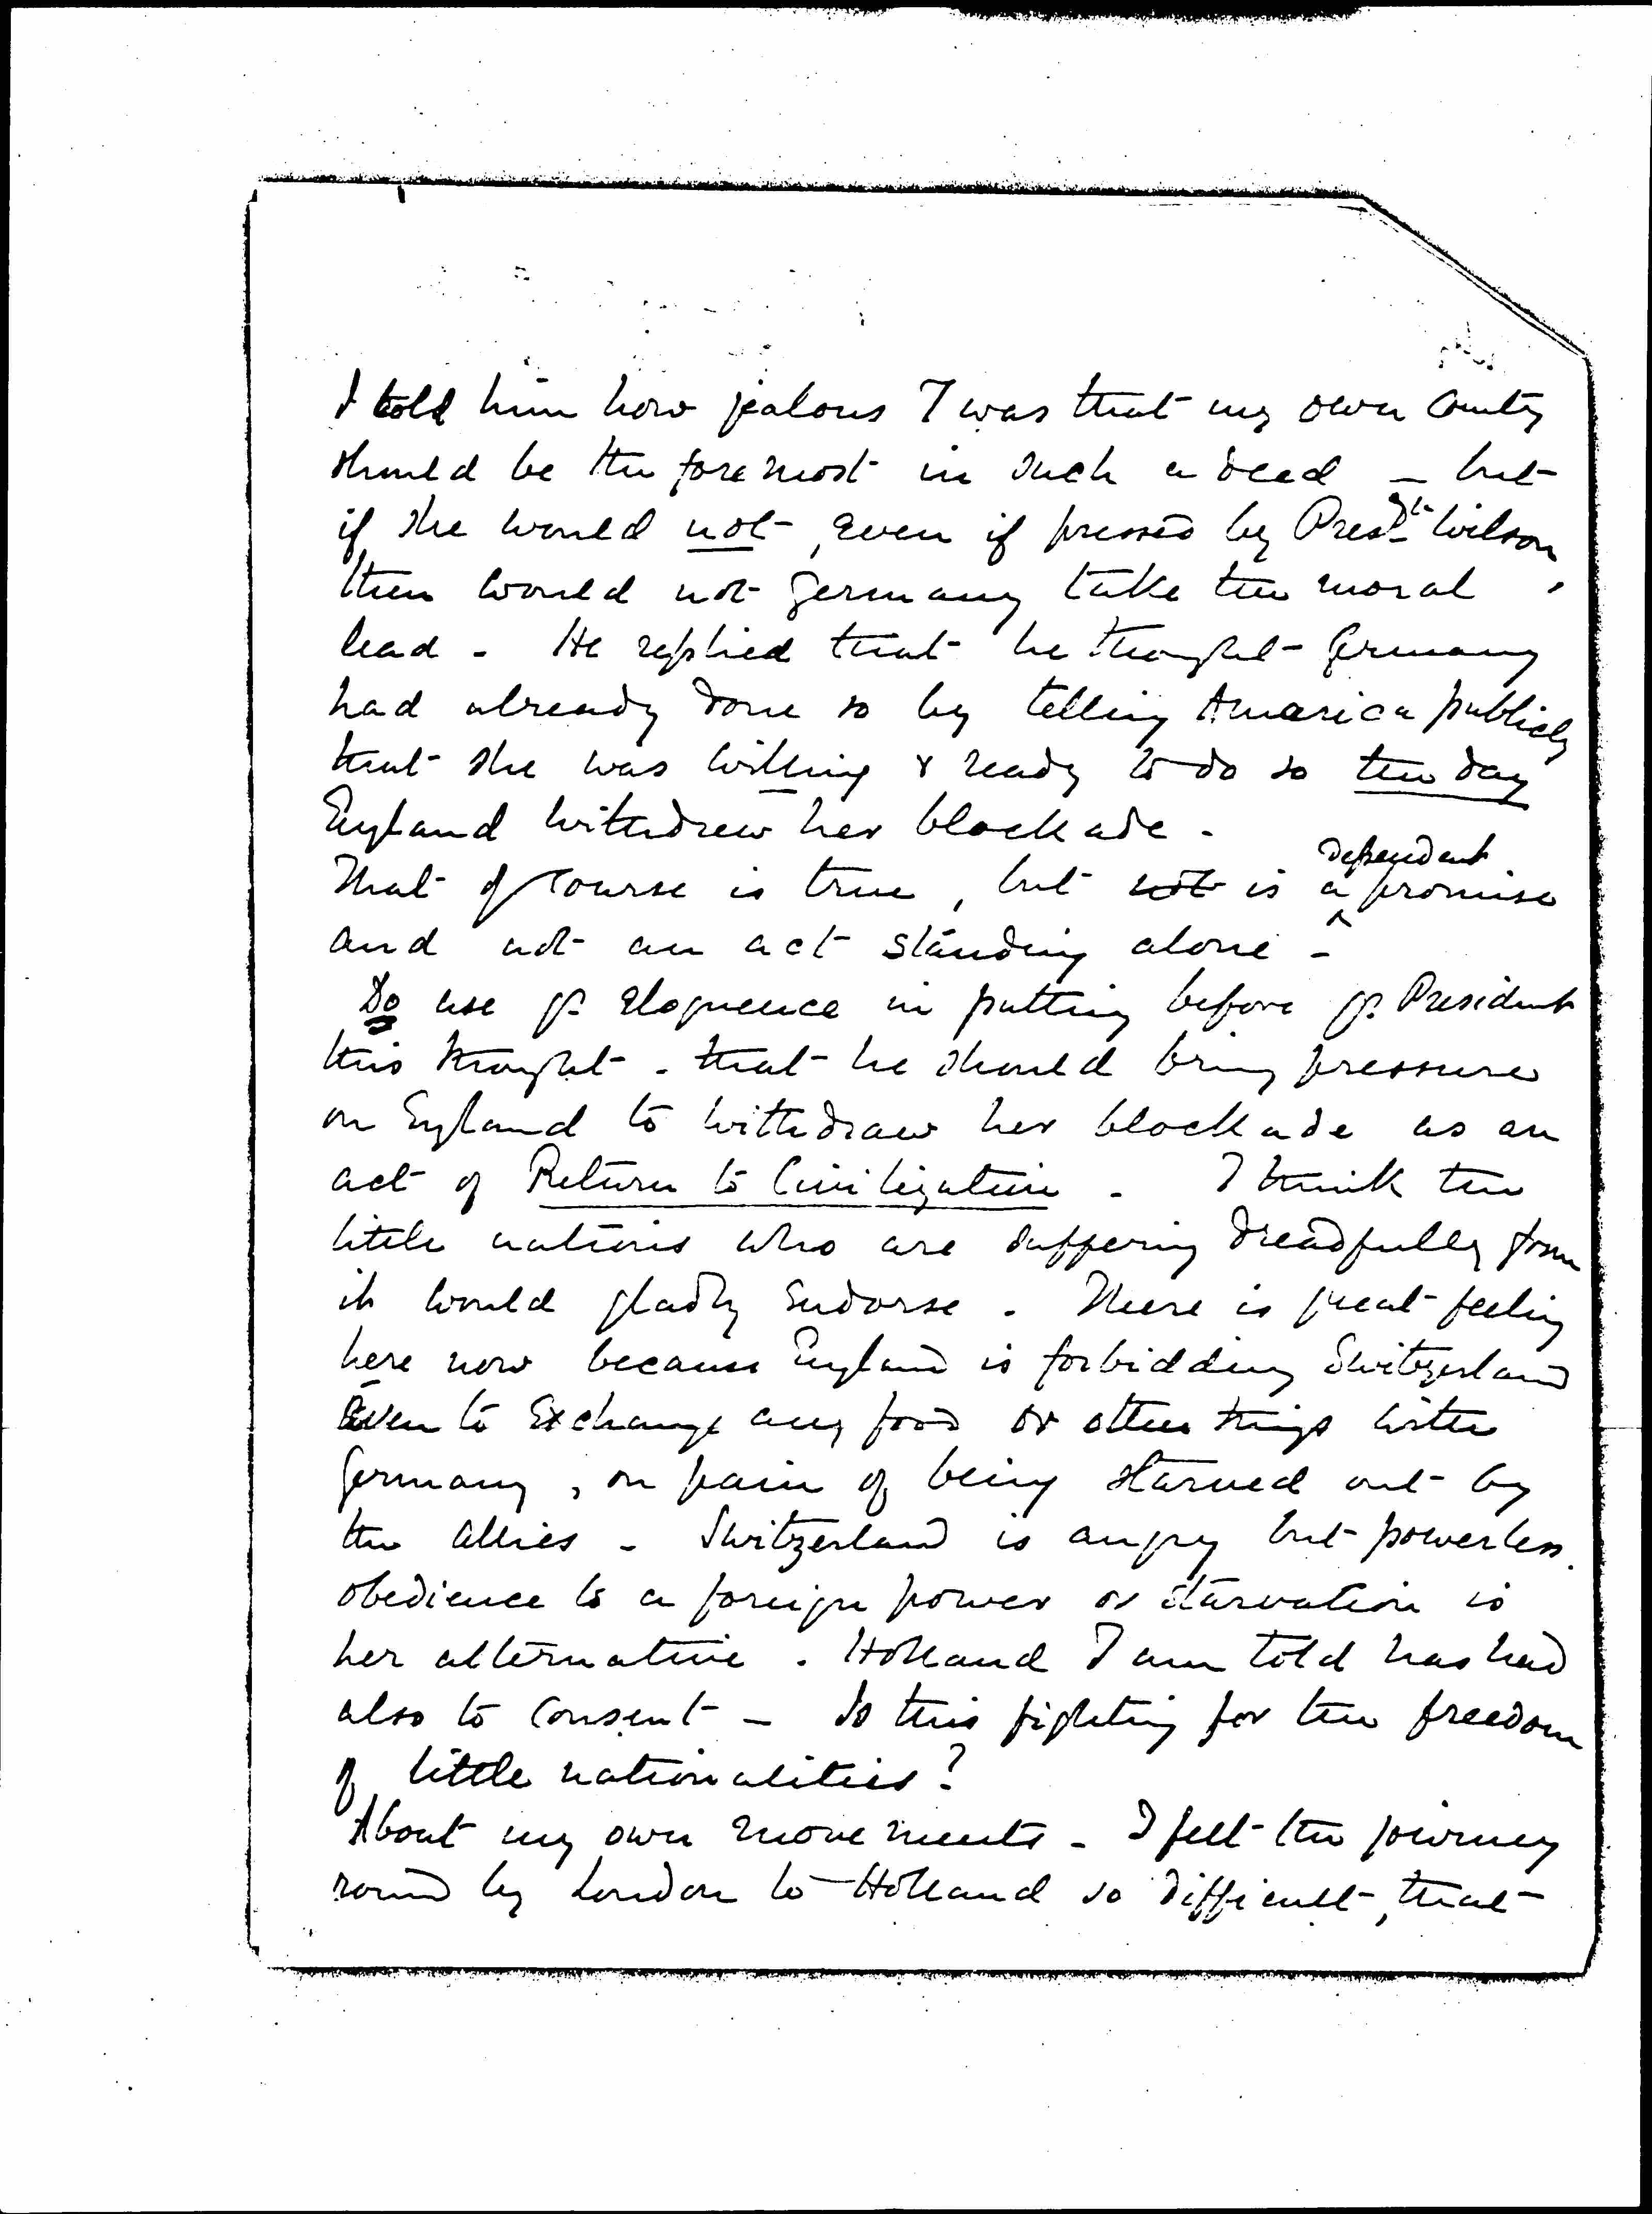 I told him how jealous I was that my own country
should be the foremost in such a deed – but
if she would not, even if pressed by Presdt Wilson,
then would not Germany take the moral
lead – He replied that he thought Germany
had already done so by telling America publicly
that she was willing & ready to do so the day
England withdrew her blockade –
dependent
That of course is true, but not is a promise
and not an act standing alone –
Do use yr eloquence in putting before yr President
this thought – that he should bring pressure
on England to withdraw her blockade as an
act of Return to Civilization – I think the
little nations who are suffering dreadfully from
it would gladly endorse. There is great feeling
here now because England is forbidding Switzerland
even to exchange any food or other things with
Germany, on pain of being starved out by
the allies – Switzerland is angry but powerless.
obedience to a foreign power or starvation is
her alternative. Holland I am told has had
also to consent – Is this fighting for the freedom
of little nationalities?
About my own movements – I felt the journey
round by London to Holland so difficult, that